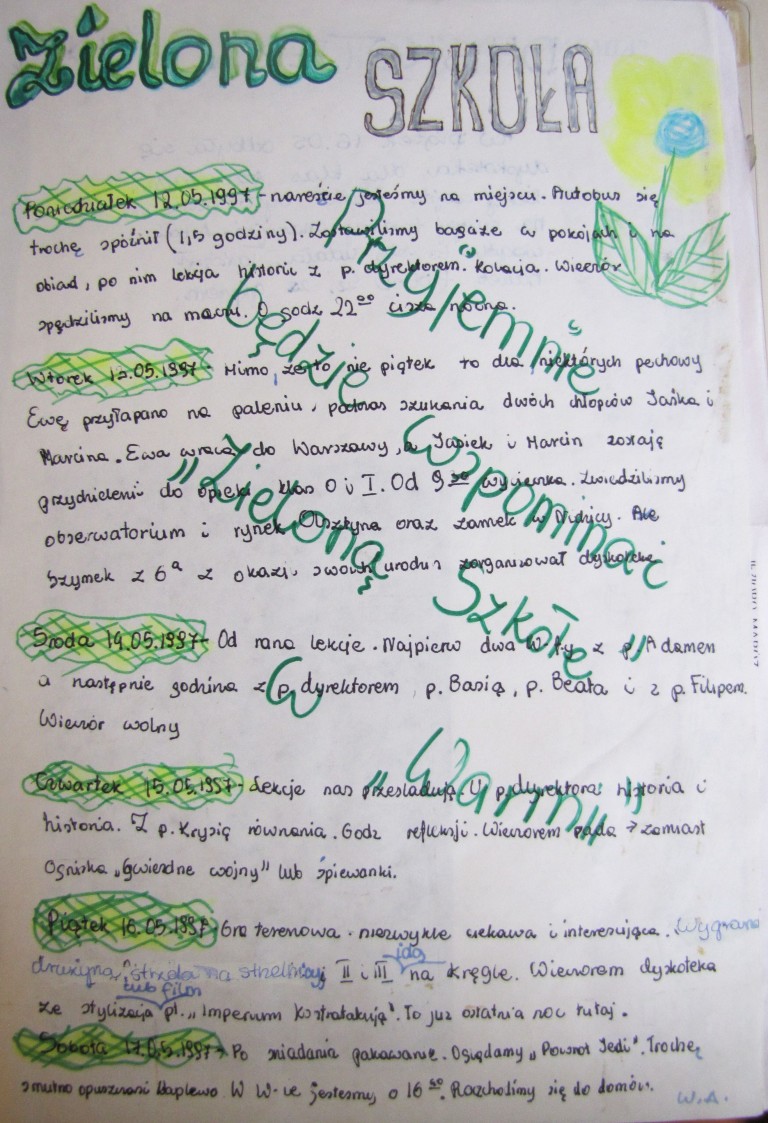 Zielona SZKOŁA
Poniedziałek 12.05.1997 - nareście jesteśmy na miejscu. Autobus się
trochę spóźnił (1,5 godziny). Zostawiliśmy bagaże w pokojach i na
obiad, po nim lekcja historii z p. dyrektorem. Kolacja. Wieczór
spędziliśmy na macni. O godz 22⁰⁰ cisza nocna.
Wtorek 12.05.1997 - Mimo, że to nie piątek to dla niektórych pechowy
Ewę przyłapano na paleniu, podczas szukania dwóch chłopców Jaśka i
Marcina. Ewa wraca do Warszawy, a Jasiek i Marcin zostają
przydzieleni do opieki klas 0 i I. Od 9³⁰ wycieczka. Zwiedziliśmy
obserwatorium i rynek Olsztyna oraz zamek w Nidzicy. Ale
Szymek z 6ᵃ z okazji swoich urodzin zorganizował dyskotekę
Środa 14.05.1997 - Od rana lekcje. Najpierw dwa W-fy z p. Adamem
a następnie godzina z p. dyrektorem, p. Basią, p. Beatą i z p. Filipem.
Wieczór wolny
Czwartek 15.05.1997 - Lekcje nas prześladują. U p. dyrektora historia i
historia. Z p. Krysią równania. Godz refleksji. Wieczorem pada → zamiast
Ogniska „Gwiezdne wojny" lub śpiewanki.
Piątek 16.05.1997 - Gra terenowa. niezwykle ciekawa i interesująca. Wygrana
drużyna strzela na strzelnicy II i III idą na kręgle. Wieczorem dyskoteka
lub film
ze stylizacją pt. „Imperium kontratakują". To już ostatnia noc tutaj.
Sobota 17.05.1997 - Po śniadaniu pakowanie. Oglądamy „Powrót Jedi". Trochę
smutno opuszczać Waplewo. W W-ie jesteśmy o 16³⁰. Rozchodzimy się do domów. W.A.
Przyjemnie
będzie
wspominać
„Zieloną
Szkołę
w
„Warnii"